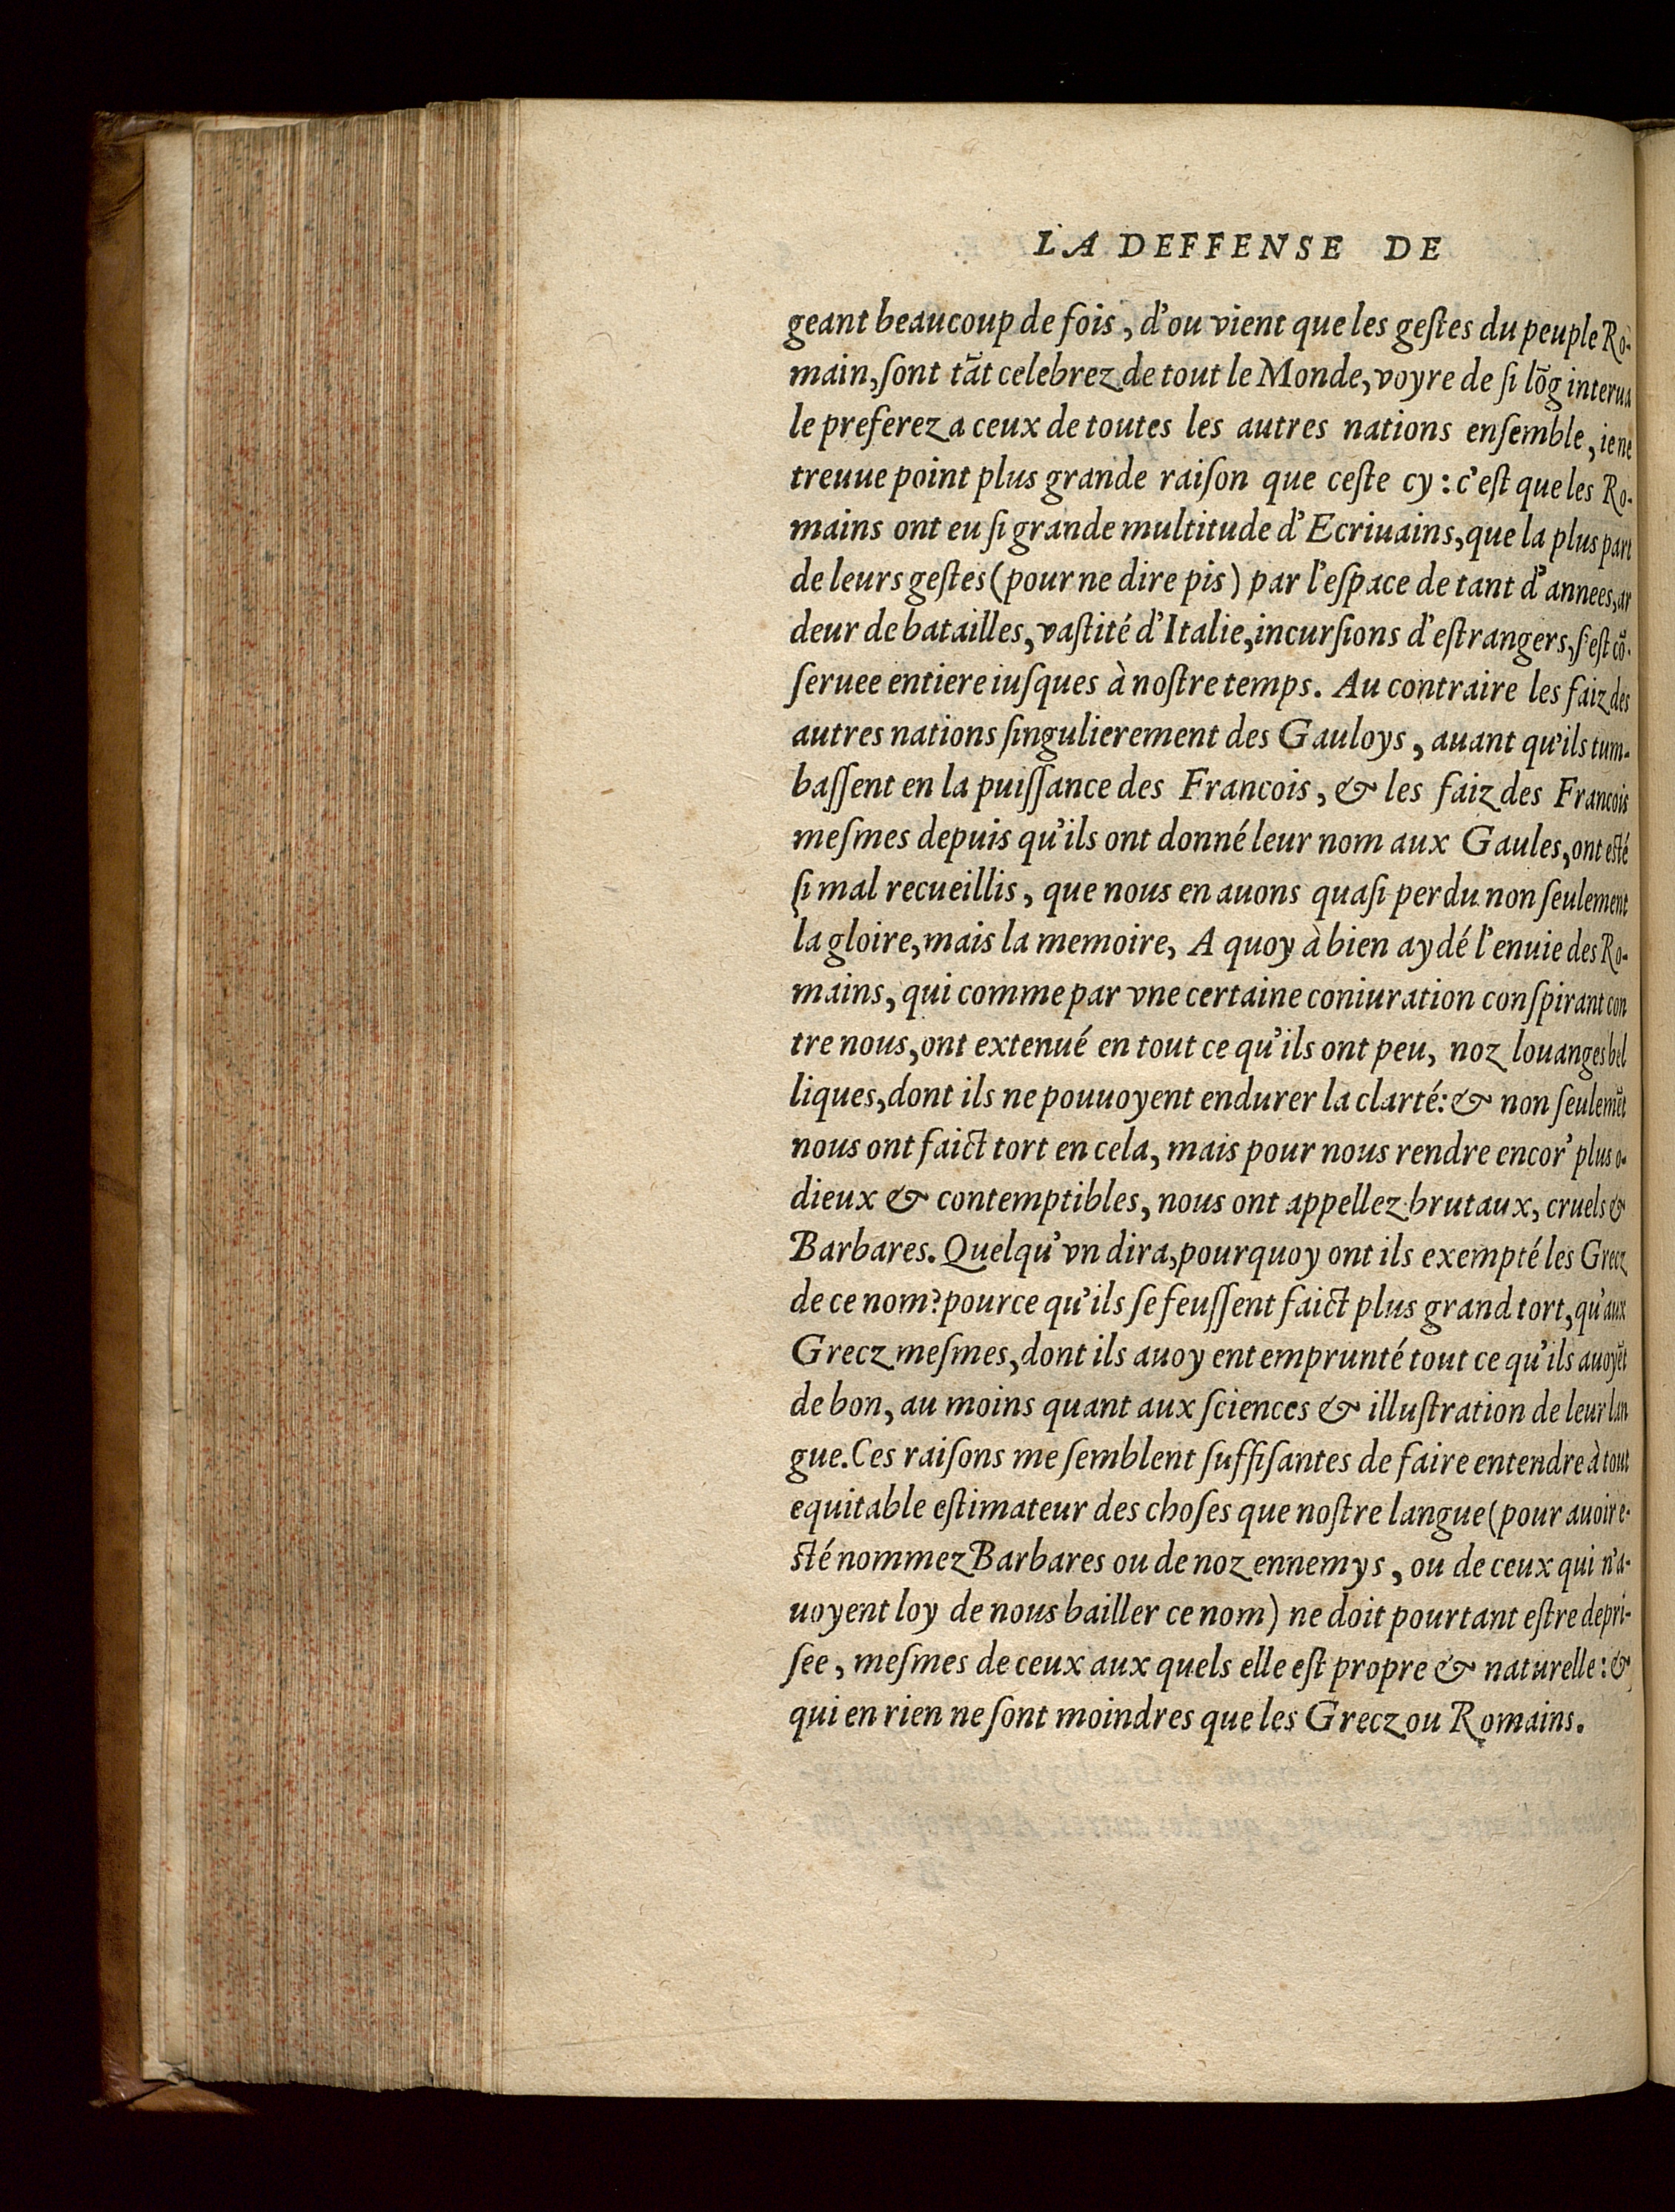 LA DEFFENSE DE
geant beaucoup de fois, d'ou vient que les geſtes du peuple Ro-
main, ſont tãt celebrez de tout le Monde, voyre de ſi lõg interua
le preferez a ceux de toutes les autres nations enſemble, ie ne
treuue point plus grande raiſon que ceſte cy: c'eſt que les Ro-
mains ont eu ſi grande multitude d'Ecriuains, que la plus part
de leurs geſtes (pour ne dire pis) par l'eſpace de tant d'annees, ar
deur de batailles, vaſtité d'Italie, incurſions d'eſtrangers, ſ'eſt cõ-
ſeruee entiere iuſques à noſtre temps. Au contraire les faiz des
autres nations ſingulierement des Gauloys, auant qu'ils tum-
baſſent en la puiſſance des Francois, & les faiz des Francois
meſmes depuis qu'ils ont donné leur nom aux Gaules, ont eſté
ſi mal recueillis, que nous en auons quaſi perdu non ſeulement
la gloire, mais la memoire, A quoy à bien aydé l'enuie des Ro-
mains, qui comme par vne certaine coniuration conſpirant con
tre nous, ont extenué en tout ce qu'ils ont peu, noz louanges bel
liques, dont ils ne pouuoyent endurer la clarté: & non ſeulemẽt
nous ont faict tort en cela, mais pour nous rendre encor' plus o-
dieux & contemptibles, nous ont appellez brutaux, cruels &
Barbares. Quelqu'vn dira, pourquoy ont ils exempté les Grecz
de ce nom? pource qu'ils ſe feuſſent faict plus grand tort, qu'aux
Grecz meſmes, dont ils auoyent emprunté tout ce qu'ils auoyẽt
de bon, au moins quant aux ſciences & illuſtration de leur lan
gue. Ces raiſons me ſemblent ſuffiſantes de faire entendre à tout
equitable eſtimateur des choſes que noſtre langue (pour auoir e-
ſté nommez Barbares ou de noz ennemys, ou de ceux qui n'a-
uoyent loy de nous bailler ce nom) ne doit pourtant eſtre depri-
ſee, meſmes de ceux aux quels elle eſt propre & naturelle: &
qui en rien ne ſont moindres que les Grecz ou Romains.